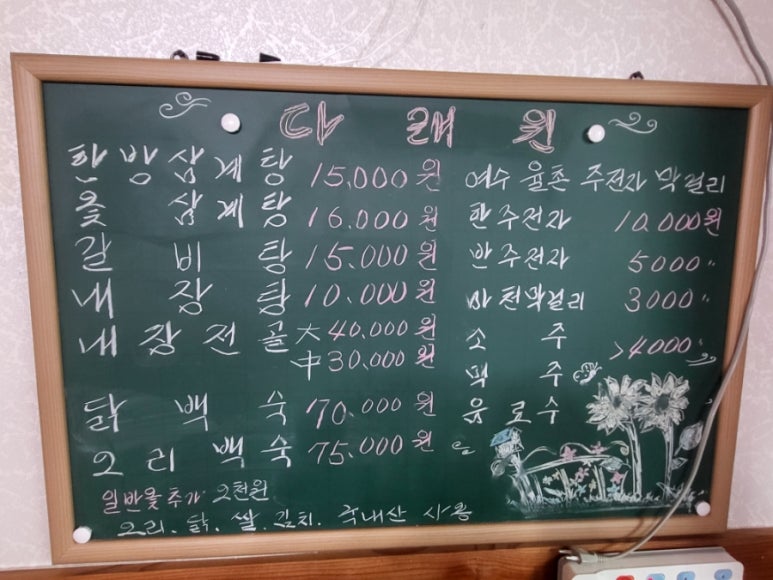 다래원
한방삼계탕 15,000원
옻삼계탕 16,000원
갈비탕 15,000원
내장탕 10,000원
내장전골 大 40,000원
中 30,000원
닭백숙 70,000원
오리백숙 75,000원
일반옻추가 2천원
오리. 닭. 쌀. 김치. 국내산 사용
여수 율촌 주전자 막걸리
한주전자 10,000원
반주전자 5000〃
마천막걸리 3000〃
소주
>4000〃
맥주
음료수